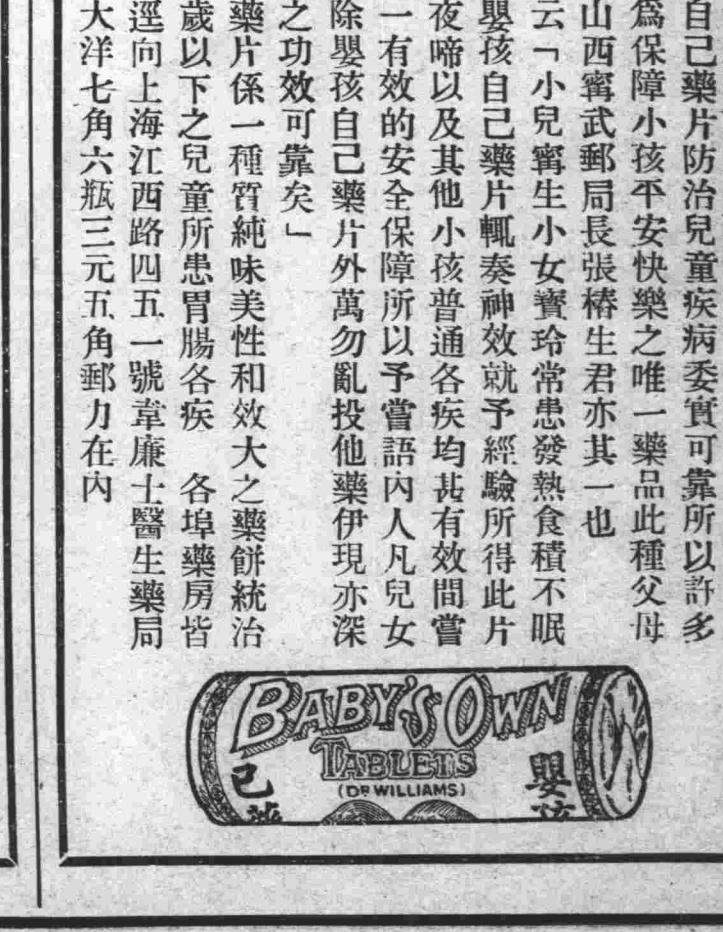 自己藥片防治兒童疾病委實可靠所以許多
爲保障小孩平安快樂之唯一藥品此種父母
山西寗武郵局長張椿生君亦其一也
云「小兒寗生小女寳玲常患發熱食積不眠
嬰孩自己藥片輒奏神效就予經驗所得此片
夜啼以及其他小孩普通各疾均甚有效間嘗
一有效的安全保障所以予嘗語內人凡兒女
除嬰孩自己藥片外萬勿亂投他藥伊現亦深
之功效可靠矣」
藥片係一種質純味美性和效大之藥餅統治
歲以下之兒童所患胃腸各疾 各埠藥房皆
逕向上海江西路四五一號韋廉士醫生藥局
大洋七角六瓶三元五角郵力在內
BABY'S OWN
TABLETS
(DR WILLIAMS)
嬰孩
己藥